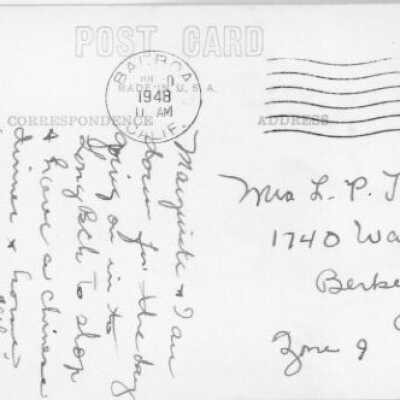 POST CARD
BALBOA
1948
11 AM
CALIF.
MADE IN U.S.A.
CORRESPONDENCE
ADDRESS
Marguerite & I are
down for the day
going on in to
Long Bch to shop
& have a chinese
dinner & home
Mrs L. P. T
1740 Wa
Berke
Zone 9